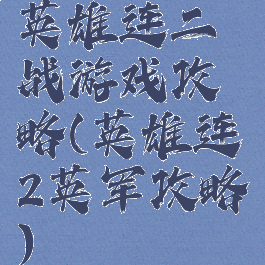 英雄连二
战游戏攻
略(英雄连
2英军攻略
)